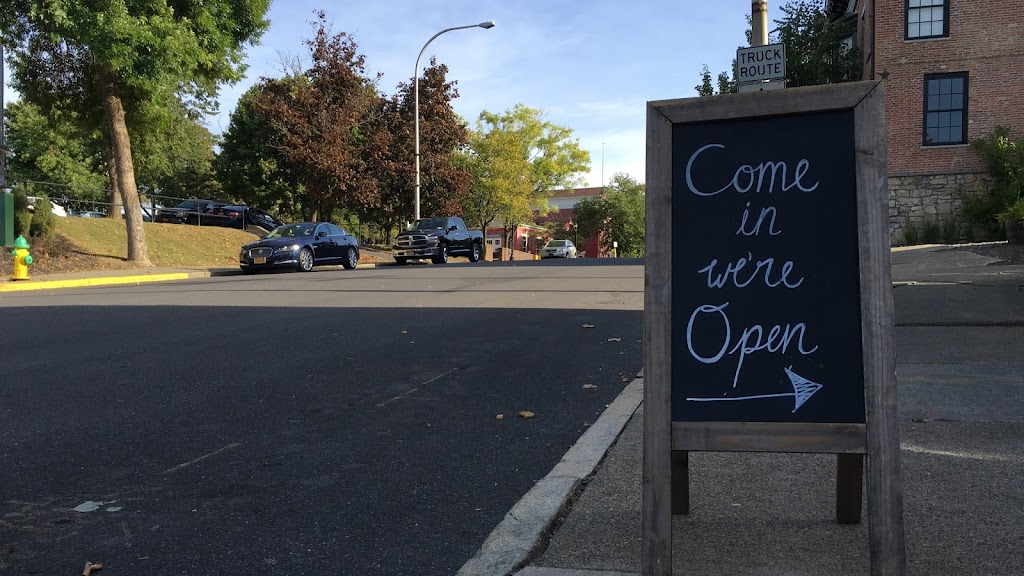 TRUCK
ROUTE
Come
in
we're
Open